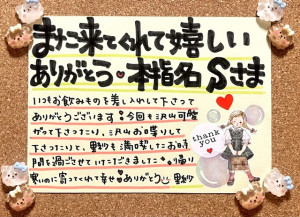 また来てくれて嬉しい
ありがとう♥本指名Sさま
いつもお飲みものを差し入れして下さって
ありがとうございます！今回も沢山可愛
がって下さったり、沢山お喋りして
下さったりと、野紗も満喫したお時
間を過ごさせていただきました♥帰り
寒いのに寄ってくれて幸せ♥ありがとう 野紗
thank
you